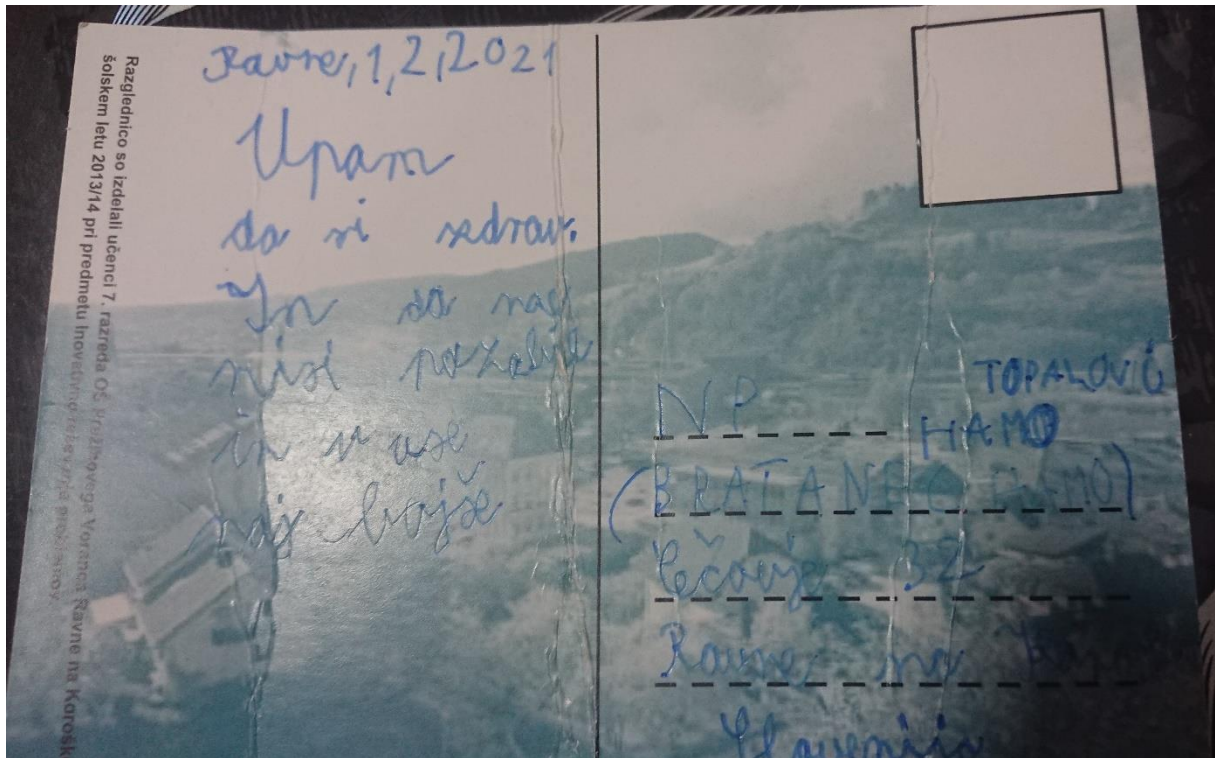 Razglednico so izdelali učenci 7. razreda OŠ Prežihovega Voranca Ravne na Korošk
šolskem letu 2013/14 pri predmetu Inovativno reševanje
Ravne, 1, 2, 2021
Upam
da si zdrav.
In da nas
nisi pozabil
in v use
naj bojše
NP TOPALOVIĆ
HAMO
(BRATANEC
Čečovje 32
Ravne na
Slovenija